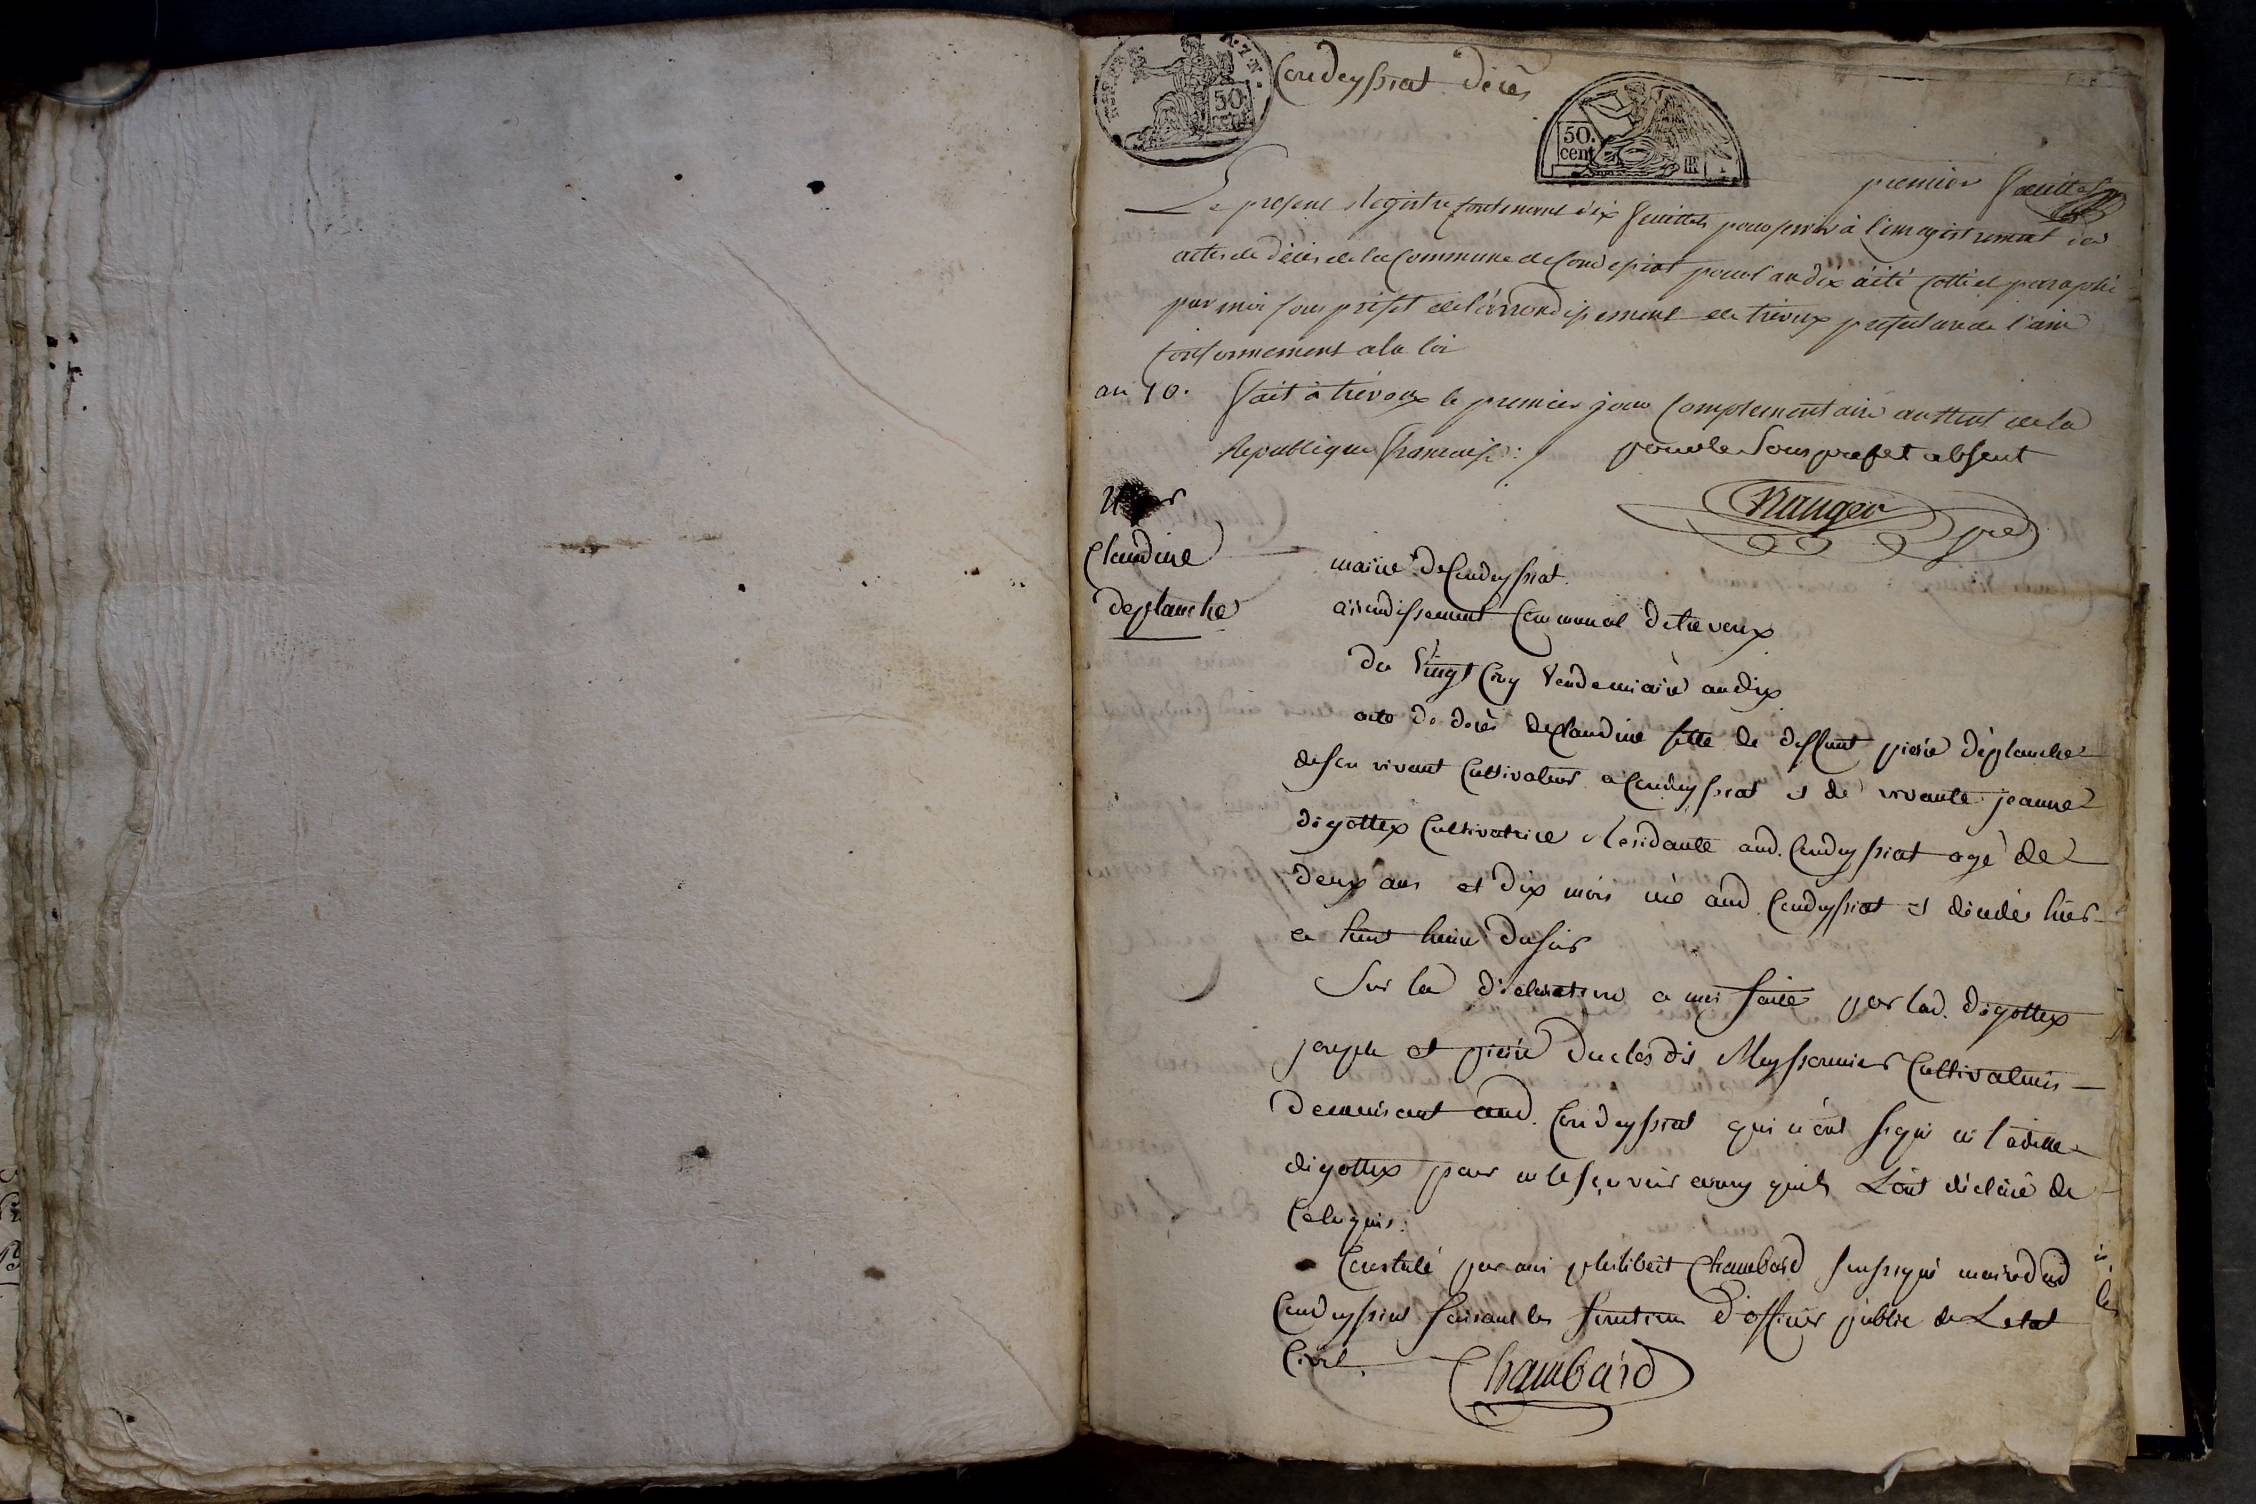 Condeyssiat décès
50 cent
50. cent
premier feuillet
Le present Registre contenant dix feuillets pour servir à l'enregistrement des
actes de décès de la Commune de Condeissiat pour l'an dix à été cotté et paraphé
par moi sous préfet de l'arrondissement de trévoux prefecture de l'ain
conformement a la loi
an 10.
fait à trévoux le premier jour complementaire an neuf de la
Republique française :
pour le Sous prefet absent
Claudine
deplanche
mairie de Condeyssiat.
arrondissement Communal de trevoux
du Vingt Cinq Vendemiaire an dix
acte de décès de Claudine fille de deffunt pierre déplanche
de son vivant Cultivateur a Condeyssiat et de vivante jeanne
digottex Cultivatrice Résidante aud. Condeyssiat agé de
deux ans et dix mois né aud Condeyssiat et décédé hier
a huit heure du soir
Sur la déclaration a moi faite par lad. digottex
joseph et pierre Duclos dit Meyssonnier Cultivateurs
demeurant aud. Condeyssiat qui n'ont signé ni laditte
digottex pour ne le sçavoir ainsy quils L'ont déclaré de
Ce Requis.
Constaté par moi philibert Chambard soussigné maire dud
Condeyssiat faisant les fonction d'officier public de Letat
Civil.
Chambard